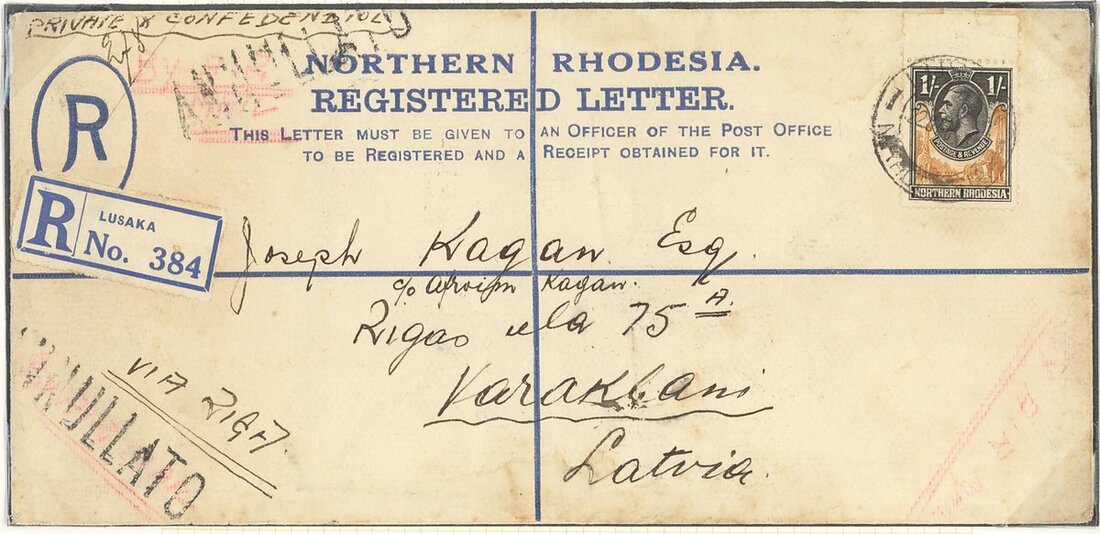 PRIVATE & CONFEDENDIOL
ANNULLATO
NORTHERN RHODESIA.
REGISTERED LETTER.
THIS LETTER MUST BE GIVEN TO AN OFFICER OF THE POST OFFICE
TO BE REGISTERED AND A RECEIPT OBTAINED FOR IT.
R
1/- 1/-
POSTAGE & REVENUE
NORTHERN RHODESIA
R LUSAKA
No. 384
Joseph Kagan Esq.
c/o Afroim Kagan.
Rigas ula 75 A.
Varaklani
Latvia.
VIA RIGA.
ANNULLATO